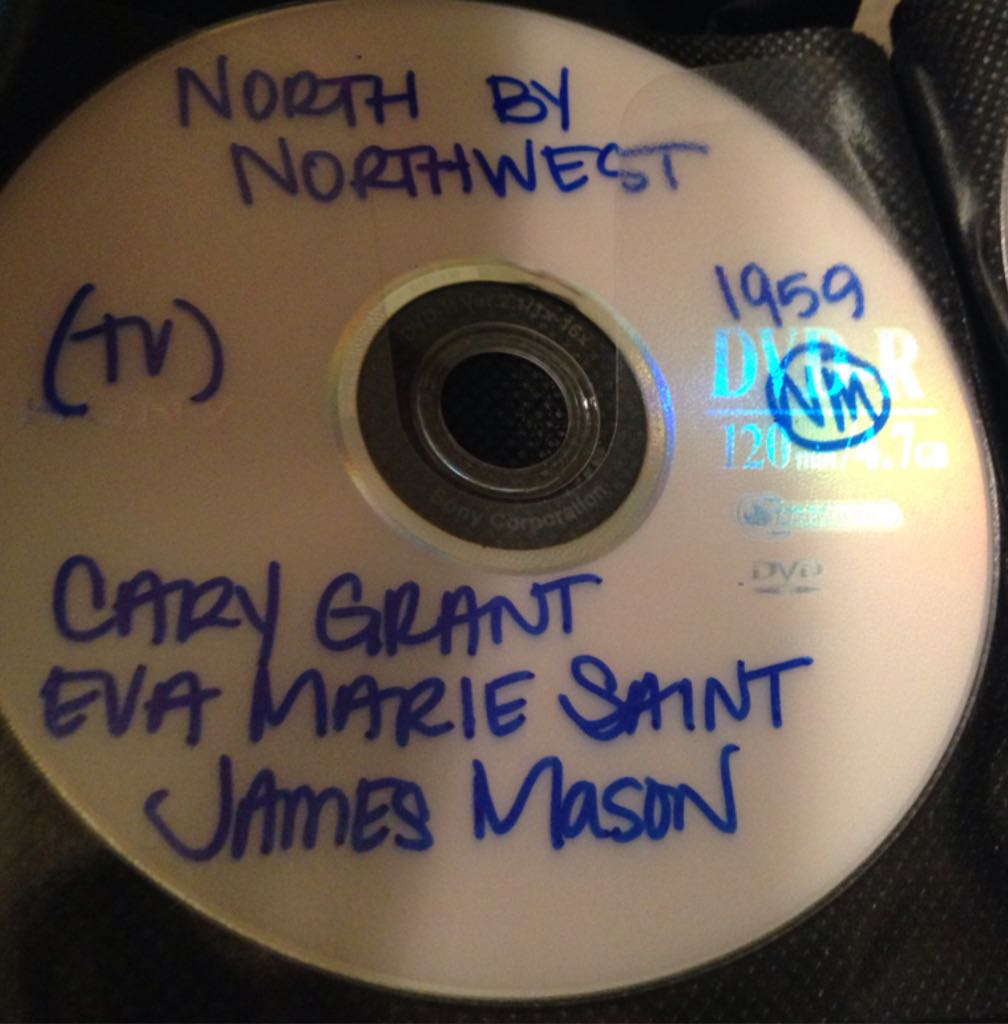 NORTH BY
NORTHWEST
(TV)
1959
DVD-R
VM
120min/4.7GB
DVD
Sony Corporation
CARY GRANT
EVA MARIE SAINT
JAMES MASON